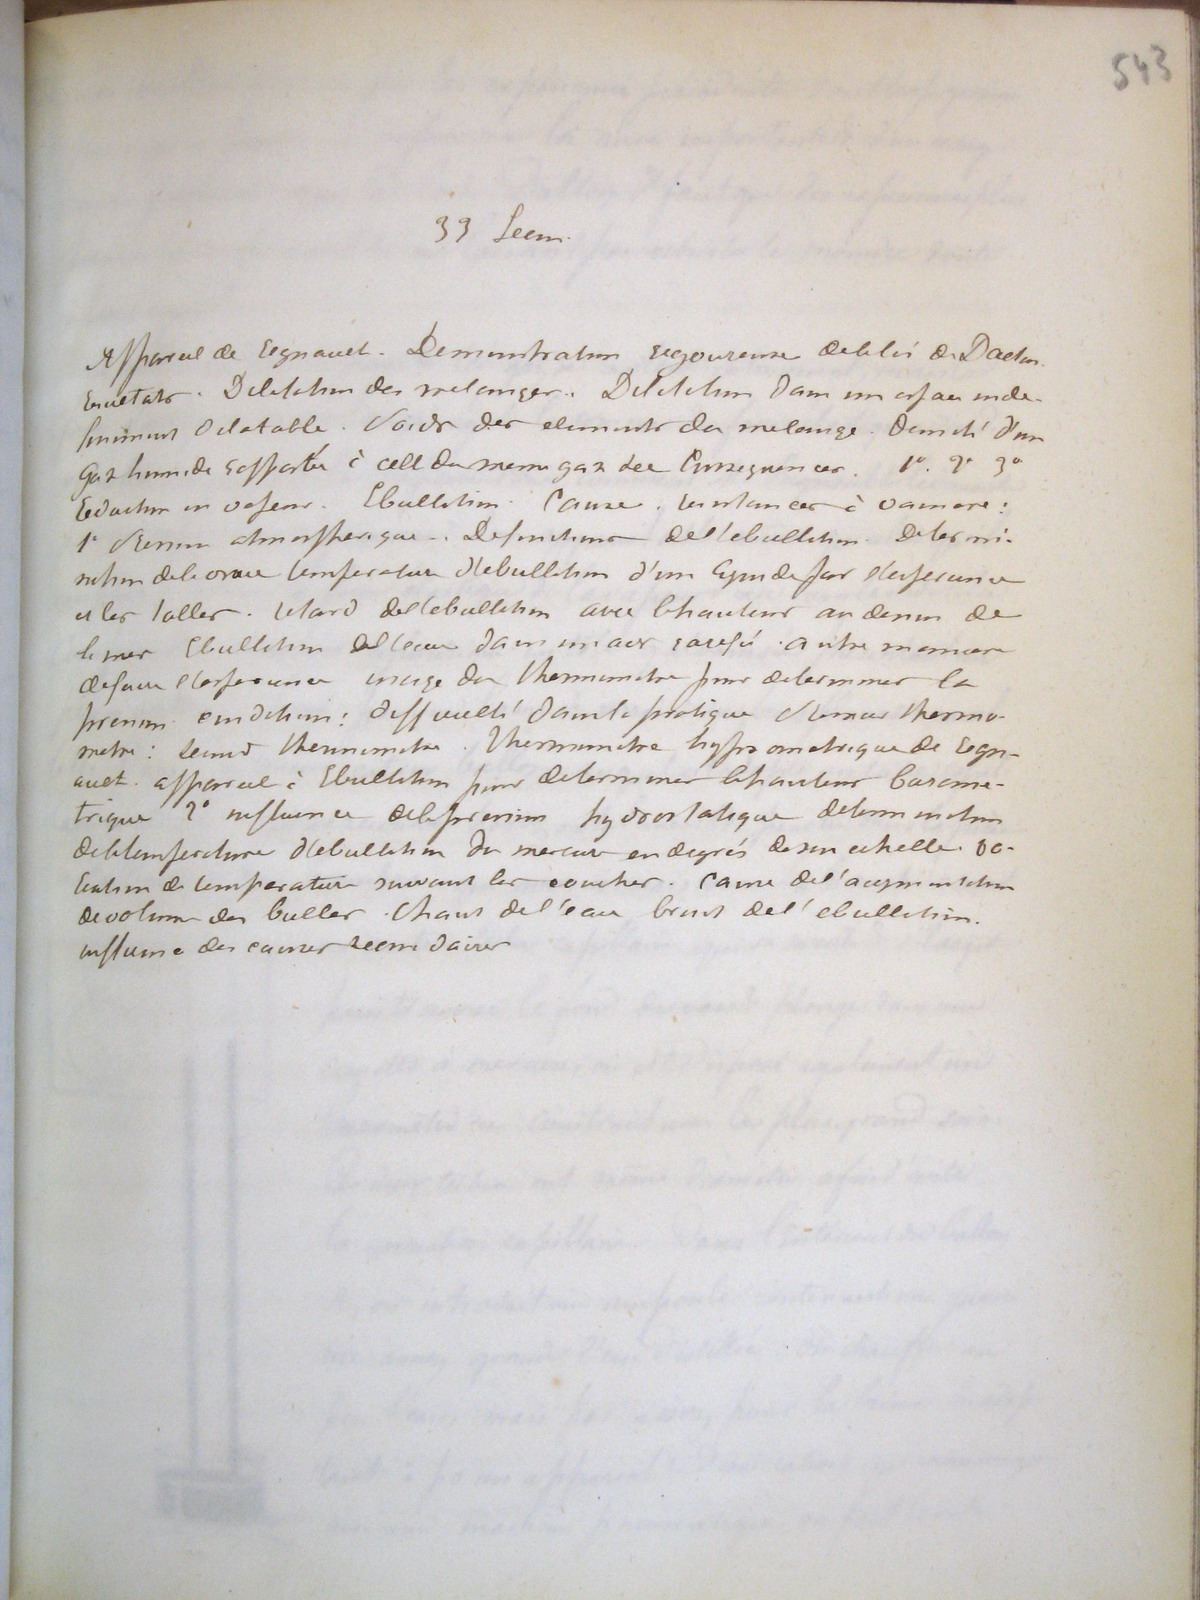 543
39 Lecon.
Appareil de Regnault. Demonstration rigoureuse de la loi de Dalton.
Resultats. Dilatation des melanges. Dilatation dans un espace inde-
finiment dilatable. Poids des elements du melange. Densité d'un
gaz humide rapportée à celle du meme gaz sec Consequences. 1° 2° 3°
Reduction en vapeur. Ebullition. Cause. resistances à vaincre:
1° Pression atmospherique. Definitions de l'ebullition. Determi-
nation de la vraie temperature d'ebullition d'un liquide par l'experience
et les tables. retard de l'ebullition avec la hauteur au dessus de
la mer Ebullition de l'eau dans un air rarefié. autre maniere
de faire l'experience usage du thermometre pour determiner la
pression condition: difficulté dans la pratique Premier thermo-
metre: second thermometre. Thermometre hypsometrique de Regn-
ault. appareil à Ebullition pour determiner la hauteur barome-
trique 2° influence de la pression hydrostatique determination
de la temperature d'ebullition du mercure en degrés de son echelle. va-
riation de temperature suivant les couches. Cause de l'augmentation
de volume des bulles. Chant de l'eau bruit de l'ebullition.
influence des causes secondaires